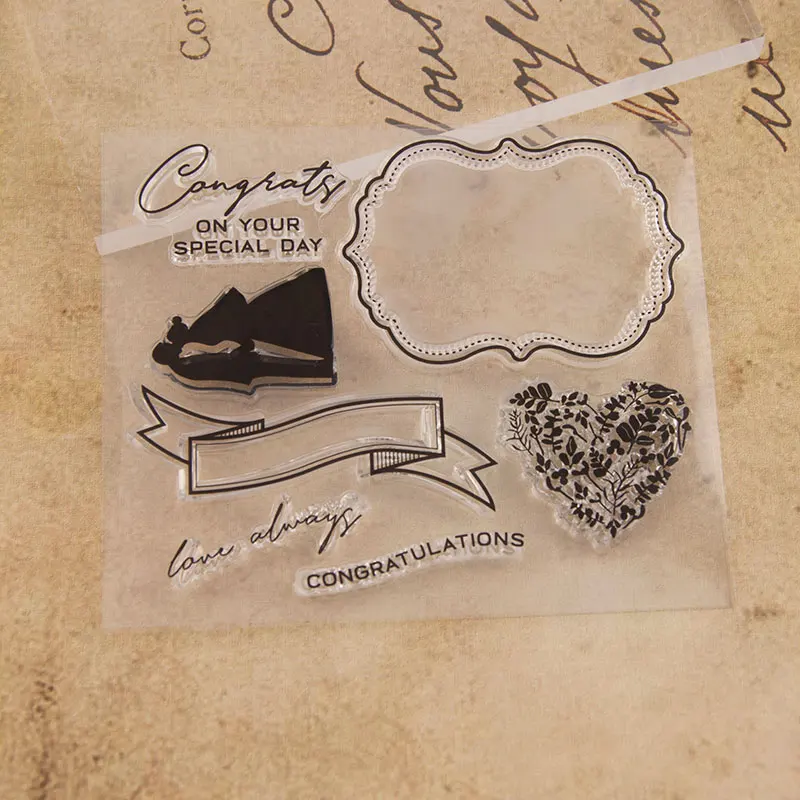 Cor
Vous
Congrats
ON YOUR
SPECIAL DAY
love always
CONGRATULATIONS